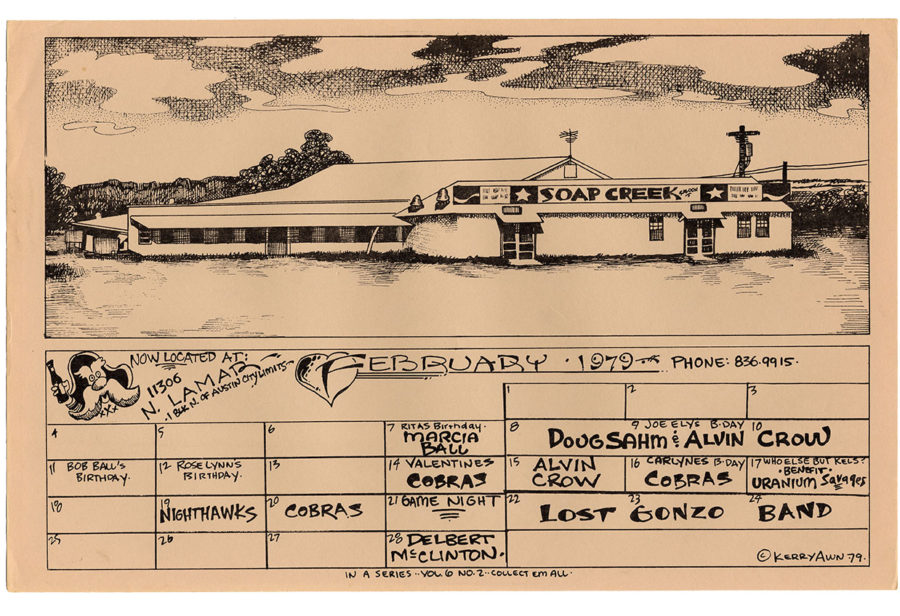 SOAP CREEK SALOON
NOW LOCATED AT:
11306
N. LAMAR
1 BLK N. OF AUSTIN CITY LIMITS
XXX
FEBRUARY · 1979
PHONE: 836.9915.
1
2
3
4
5
6
7 RITAS Birthday.
MARCIA
BALL
8
9 JOE ELYS B·DAY
10
DOUG SAHM & ALVIN CROW
11 BOB BALL'S
BIRTHDAY.
12 ROSELYNN'S
BIRTHDAY.
13
14 VALENTINES
COBRAS
15 ALVIN
CROW
16 CARLYNES B·DAY
COBRAS
17 WHO ELSE BUT KELS?
·BENEFIT·
URANIUM Savages
18
19
NIGHTHAWKS
20 COBRAS
21 GAME NIGHT
22
23
24
LOST GONZO BAND
25
26
27
28 DELBERT
McCLINTON.
© KERRY AWN 79.
IN A SERIES··VOL. 6 NO. 2··COLLECT EM ALL·